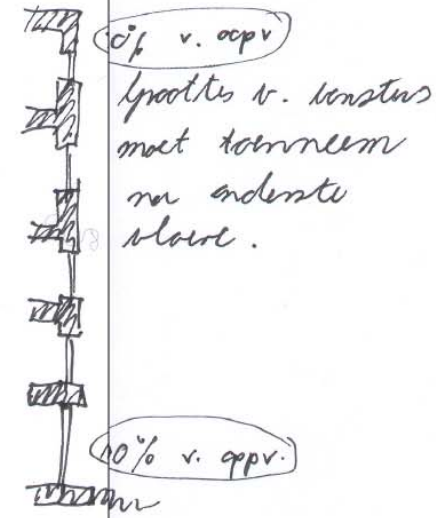 0% v. oppv
Groottes v. vensters
moet toenneem
na onderste
vloere.
10% v. oppv.